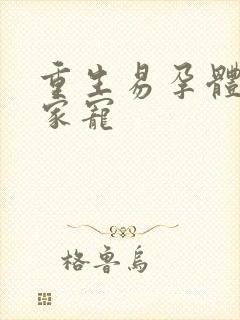 重生易孕體
家寵
格魯烏